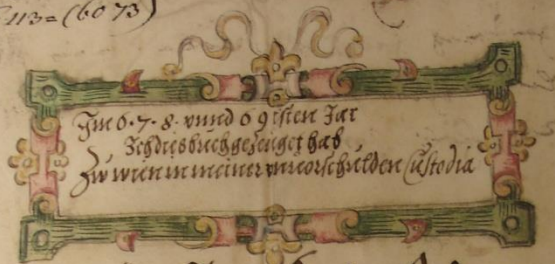 113 = (60 73)
Im 6·7·8· vnnd 09isten Jar
Ich dies buch gezeuget hab
Zw wien in meiner vnvorschulden Custodia